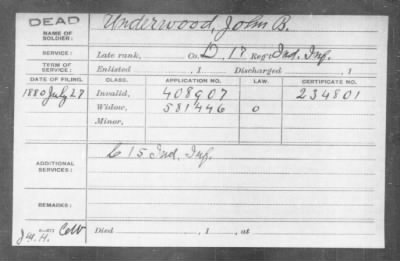 DEAD
Underwood, John B.
NAME OF SOLDIER:
SERVICE: Late rank, Co. D, 17 Reg't Ind. Inf.
TERM OF SERVICE: Enlisted , 1 Discharged , 1
DATE OF FILING. CLASS. APPLICATION NO. LAW. CERTIFICATE NO.
1880 July 27 Invalid, 408907 234801
Widow, 581446 0
Minor,
ADDITIONAL SERVICES: C 15 Ind. Inf.
REMARKS:
Died , 1 , at